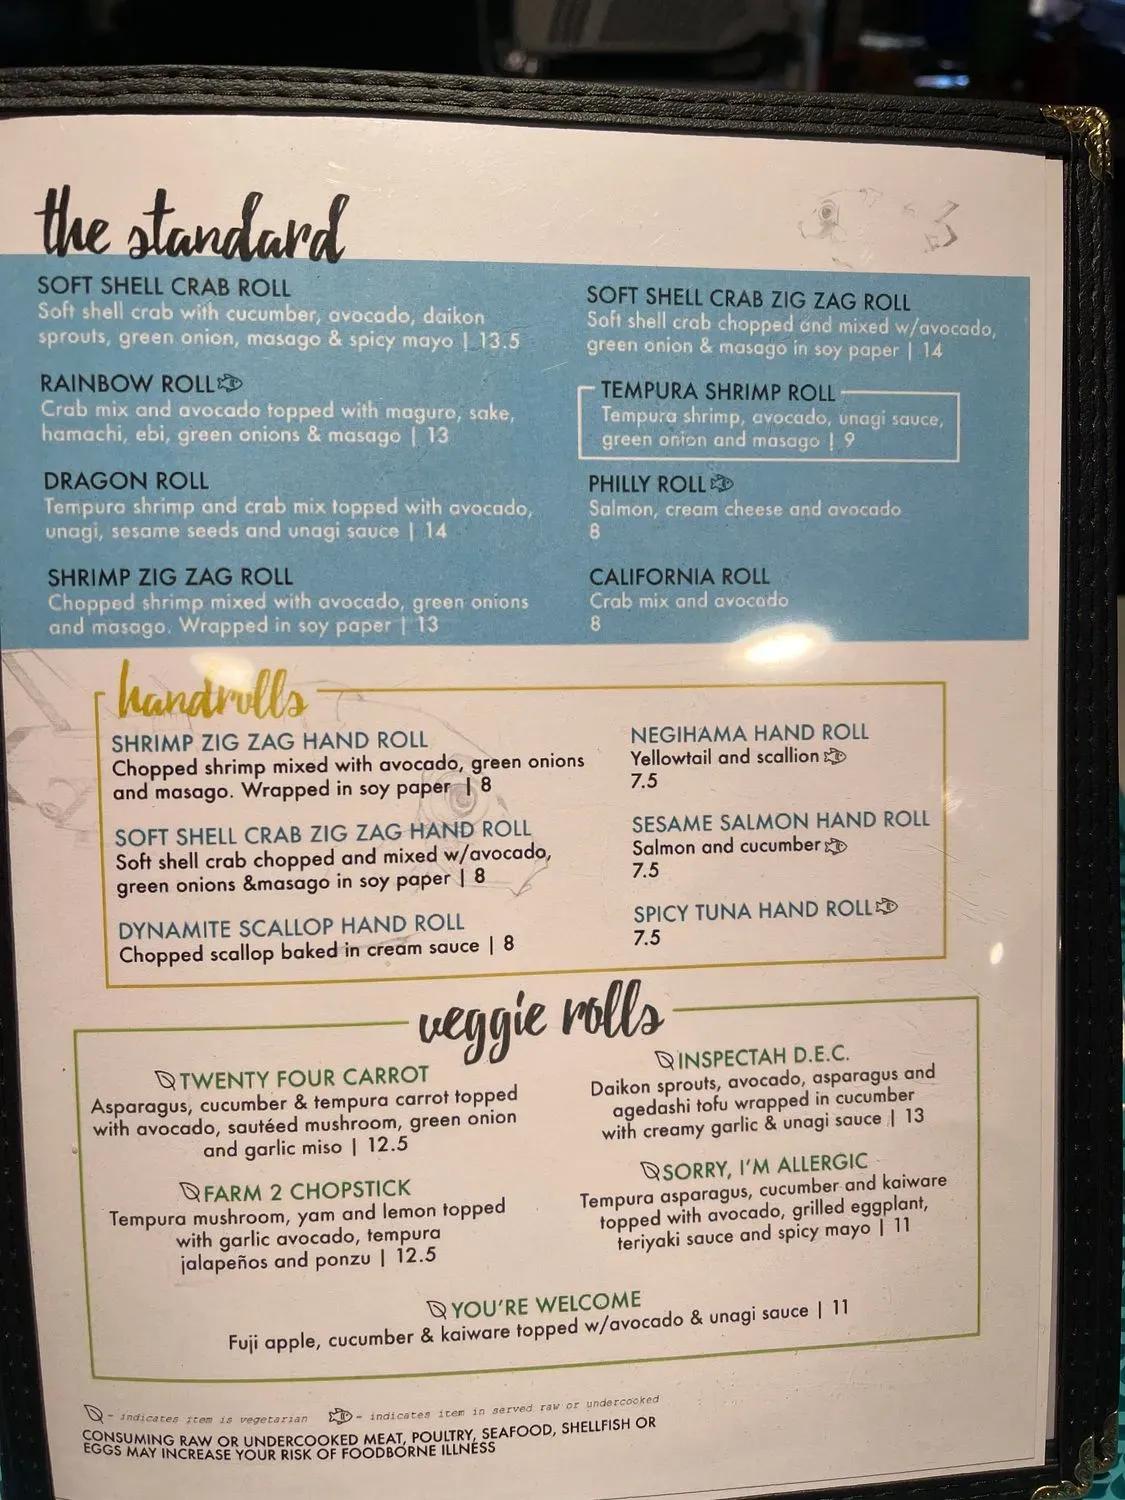 the standard
SOFT SHELL CRAB ROLL
Soft shell crab with cucumber, avocado, daikon
sprouts, green onion, masago & spicy mayo | 13.5
RAINBOW ROLL
Crab mix and avocado topped with maguro, sake,
hamachi, ebi, green onions & masago | 13
DRAGON ROLL
Tempura shrimp and crab mix topped with avocado,
unagi, sesame seeds and unagi sauce | 14
SHRIMP ZIG ZAG ROLL
Chopped shrimp mixed with avocado, green onions
and masago. Wrapped in soy paper | 13
SOFT SHELL CRAB ZIG ZAG ROLL
Soft shell crab chopped and mixed w/avocado,
green onion & masago in soy paper | 14
TEMPURA SHRIMP ROLL
Tempura shrimp, avocado, unagi sauce,
green onion and masago | 9
PHILLY ROLL
Salmon, cream cheese and avocado
8
CALIFORNIA ROLL
Crab mix and avocado
8
handrolls
SHRIMP ZIG ZAG HAND ROLL
Chopped shrimp mixed with avocado, green onions
and masago. Wrapped in soy paper | 8
SOFT SHELL CRAB ZIG ZAG HAND ROLL
Soft shell crab chopped and mixed w/avocado,
green onions &masago in soy paper | 8
DYNAMITE SCALLOP HAND ROLL
Chopped scallop baked in cream sauce | 8
NEGIHAMA HAND ROLL
Yellowtail and scallion
7.5
SESAME SALMON HAND ROLL
Salmon and cucumber
7.5
SPICY TUNA HAND ROLL
7.5
veggie rolls
TWENTY FOUR CARROT
Asparagus, cucumber & tempura carrot topped
with avocado, sautéed mushroom, green onion
and garlic miso | 12.5
FARM 2 CHOPSTICK
Tempura mushroom, yam and lemon topped
with garlic avocado, tempura
jalapeños and ponzu | 12.5
INSPECTAH D.E.C.
Daikon sprouts, avocado, asparagus and
agedashi tofu wrapped in cucumber
with creamy garlic & unagi sauce | 13
SORRY, I'M ALLERGIC
Tempura asparagus, cucumber and kaiware
topped with avocado, grilled eggplant,
teriyaki sauce and spicy mayo | 11
YOU'RE WELCOME
Fuji apple, cucumber & kaiware topped w/avocado & unagi sauce | 11
- indicates item is vegetarian - indicates item in served raw or undercooked
CONSUMING RAW OR UNDERCOOKED MEAT, POULTRY, SEAFOOD, SHELLFISH OR
EGGS MAY INCREASE YOUR RISK OF FOODBORNE ILLNESS